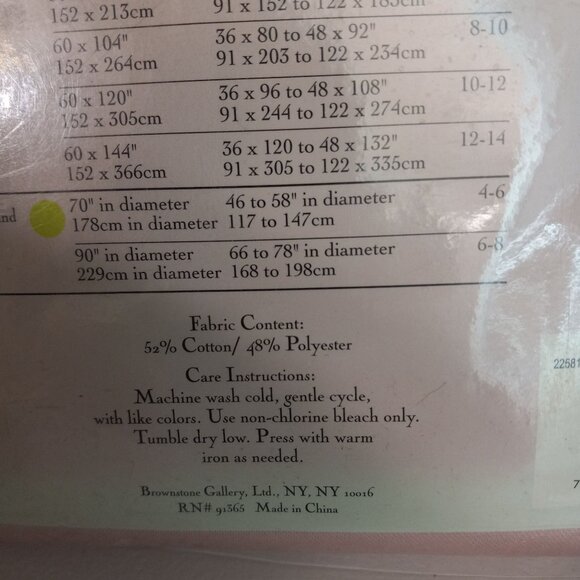 152 x 213cm 91 x 152 to 122 x 183cm
60 x 104" 36 x 80 to 48 x 92" 8-10
152 x 264cm 91 x 203 to 122 x 234cm
60 x 120" 36 x 96 to 48 x 108" 10-12
152 x 305cm 91 x 244 to 122 x 274cm
60 x 144" 36 x 120 to 48 x 132" 12-14
152 x 366cm 91 x 305 to 122 x 335cm
70" in diameter 46 to 58" in diameter 4-6
178cm in diameter 117 to 147cm
90" in diameter 66 to 78" in diameter 6-8
229cm in diameter 168 to 198cm
Fabric Content:
52% Cotton/ 48% Polyester
Care Instructions:
Machine wash cold, gentle cycle,
with like colors. Use non-chlorine bleach only.
Tumble dry low. Press with warm
iron as needed.
Brownstone Gallery, Ltd., NY, NY 10016
RN# 91365 Made in China
22581
7